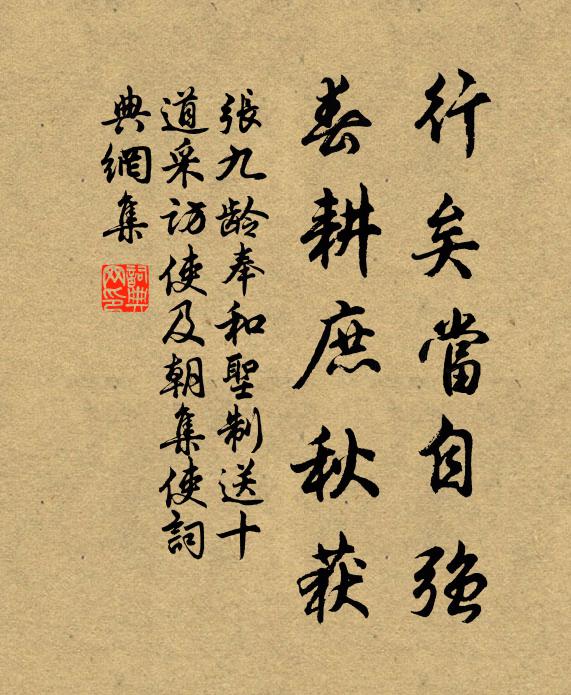 行矣當自強
春耕庶秋获
張九龄奉和聖制送十
道采访使及朝集使詞
典網集
詞典网印